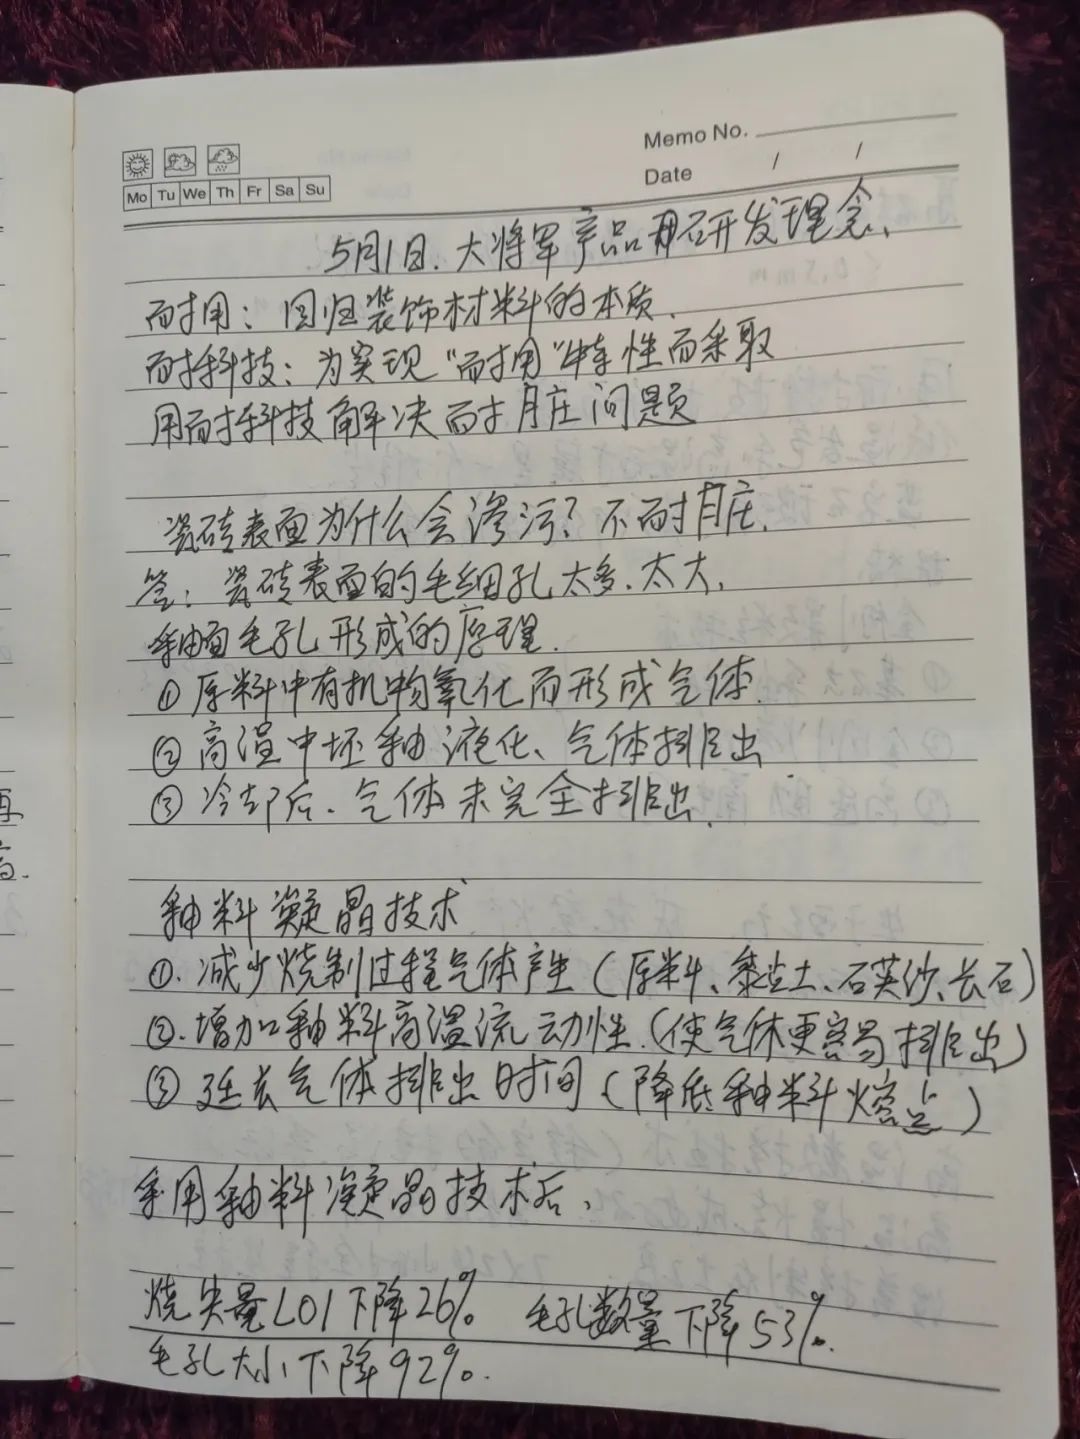 Memo No.
Mo Tu We Th Fr Sa Su
Date / /
5月1日. 大将军产品研发理念、
耐用：回归装饰材料的本质.
耐科技：为实现“耐用”特性而采取
用耐科技解决耐脏问题
瓷砖表面为什么会渗污？不耐脏.
答：瓷砖表面的毛细孔太多、太大.
釉面毛孔形成的原理.
① 原料中有机物氧化而形成气体.
② 高温中坯釉液化、气体排出
③ 冷却后、气体未完全排出.
釉料凝晶技术
①. 减少烧制过程气体产生（原料、黏土、石英沙、长石）
②. 增加釉料高温流动性.（使气体更容易排出）
③ 延长气体排出时间（降低釉料熔点）
采用釉料凝晶技术后、
烧失量LOI下降26%. 毛孔数量下降53%.
毛孔大小下降92%.